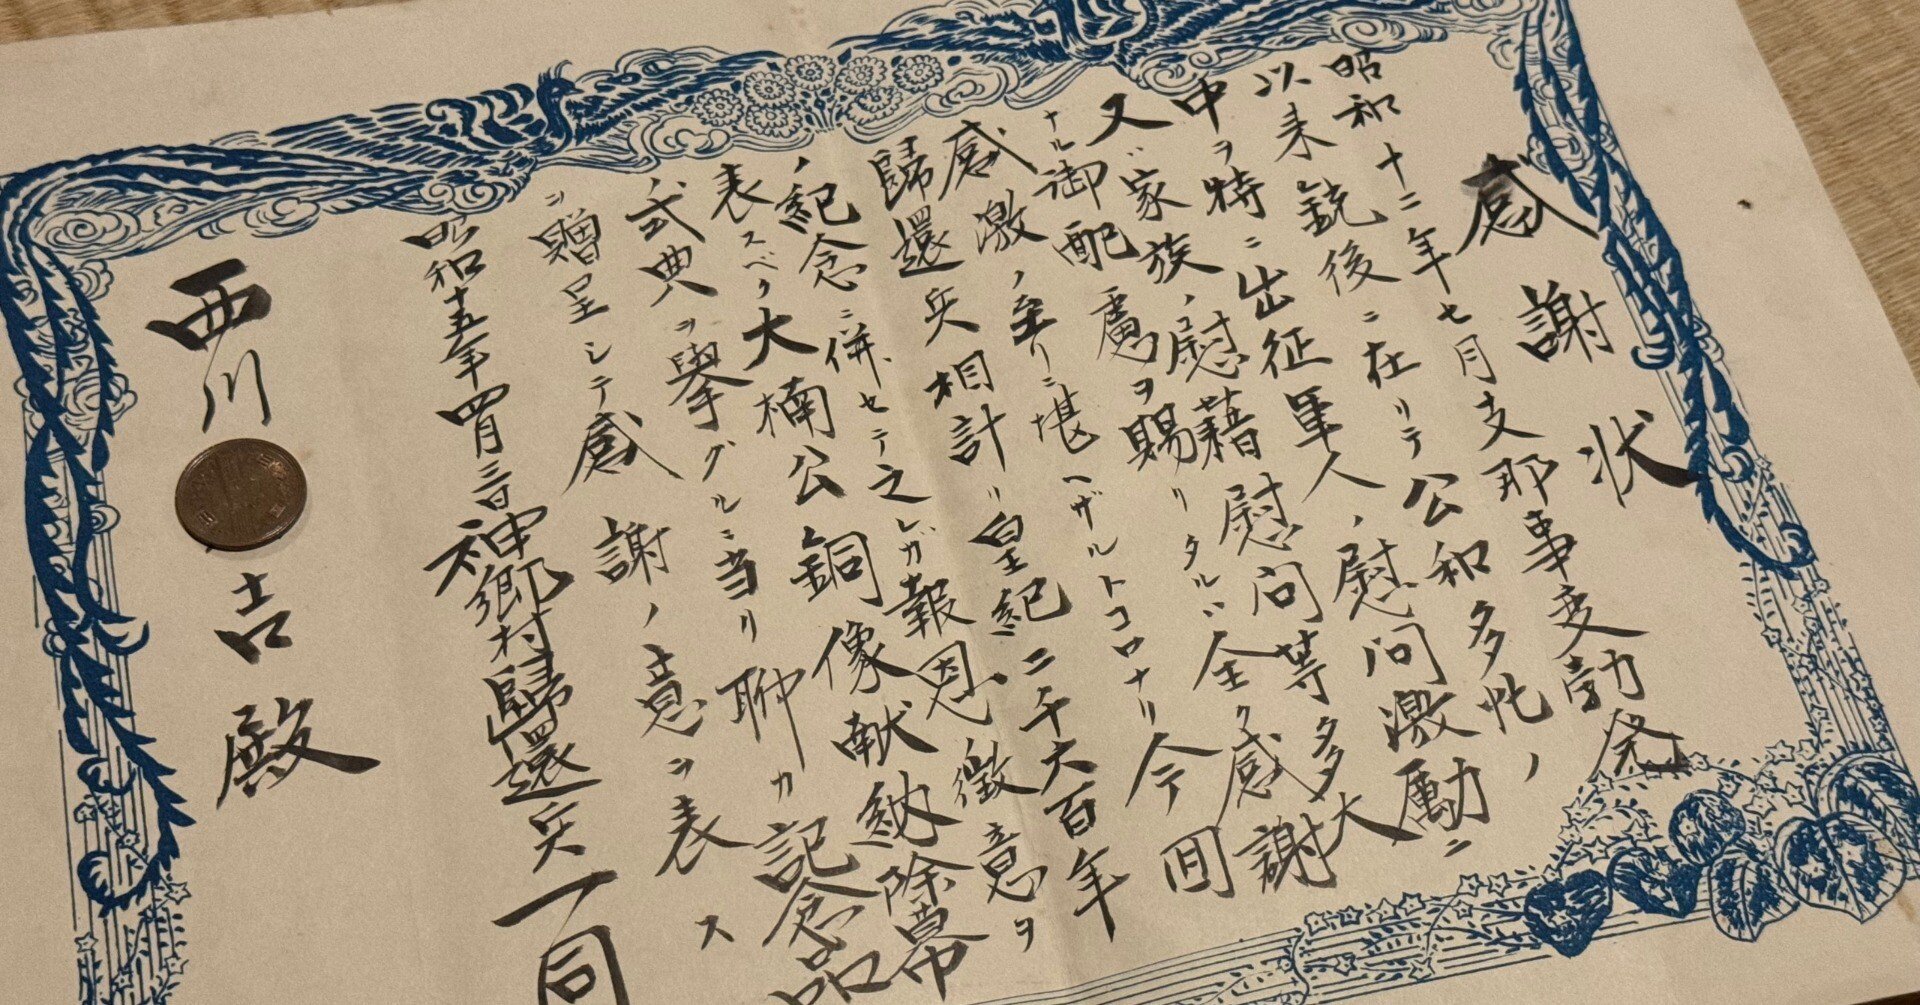 感謝状
昭和十二年七月支那事変勃発
以来銃後ニ在リテ公私多忙ノ
中ヲ特ニ出征軍人ノ慰問激励ニ
又ハ家族ノ慰藉慰問等多大
ナル御配慮ヲ賜リタルハ全ク感謝
感激ノ至リニ堪ヘザルトコロナリ今回
歸還兵相計リ皇紀二千六百年
ノ紀念ニ併セテ之レガ報恩ノ徴意ヲ
表スベク大楠公ノ銅像献納除幕
ノ式典ヲ擧グルニ当リ聊カ記念品
ヲ贈呈シテ感謝ノ意ヲ表ス
昭和十五年四月三日
神郷村歸還兵一同
西川 吉殿